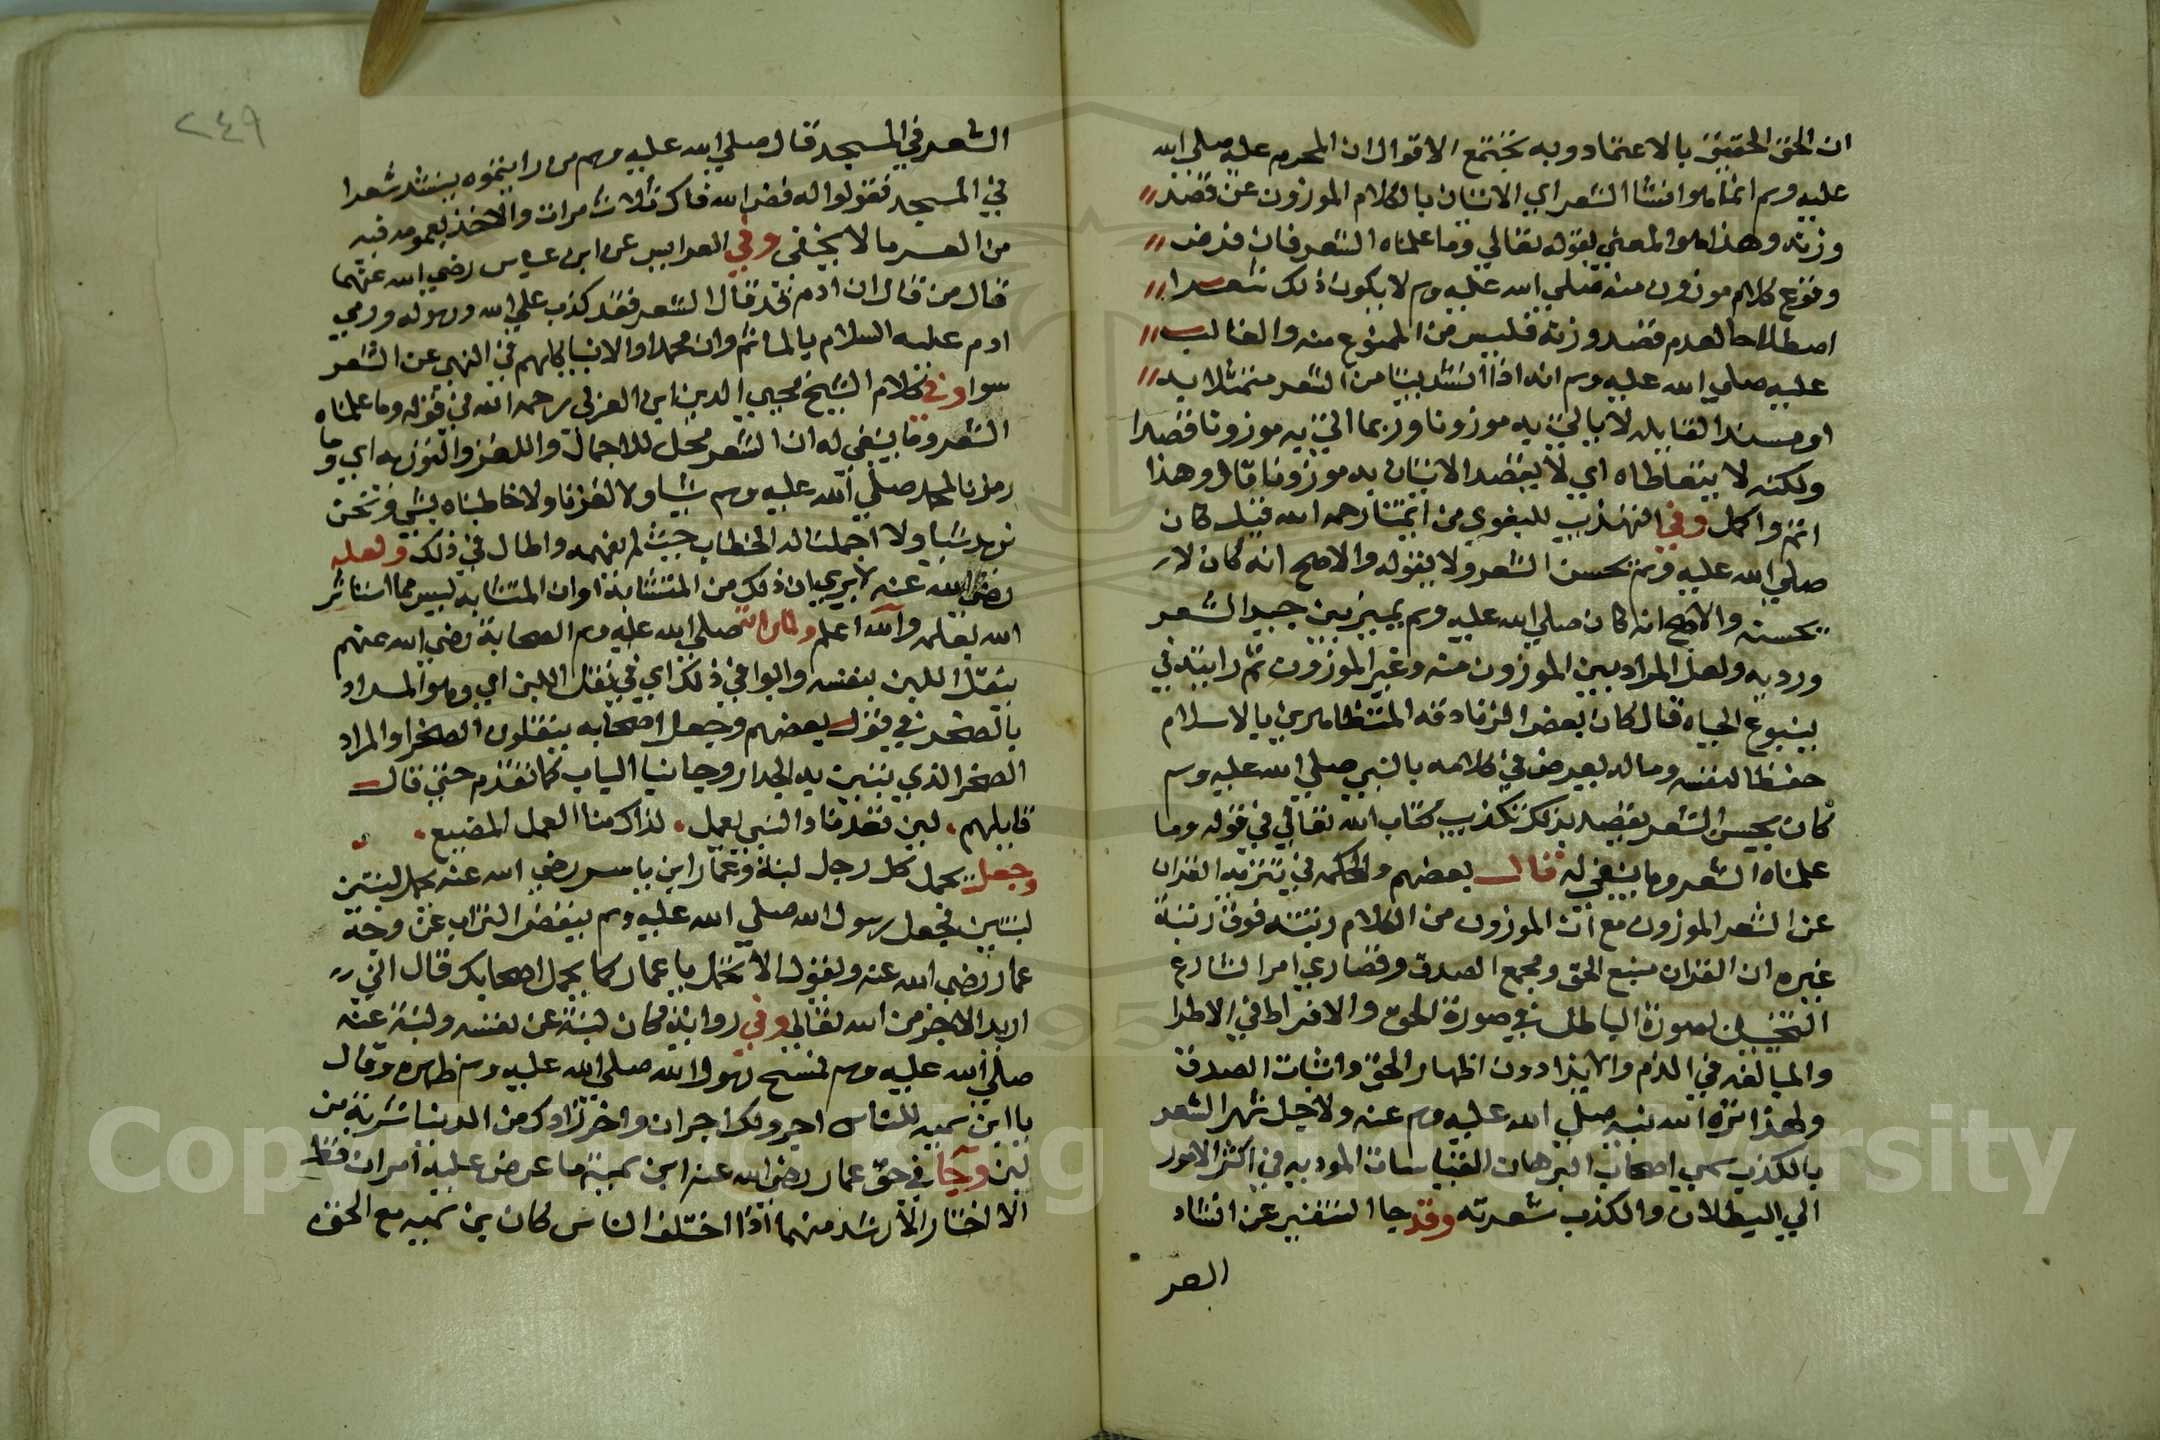 ان الحق الحقيق بالاعتماد وبه تجتمع الاقوال ان المحرم عليه صلي الله
عليه وسم انما هو انشا الشعر اي الاتيان بالكلام الموزون عن قصد
وزنه وهذا هو المعني بقوله تعالي وما علمناه الشعر فان فرض
وقوع كلام موزون منه صلي الله عليه وسم لا يكون ذلك شعرا
اصطلاحا لعدم قصد وزنه فليس من الممنوع منه والغالب
عليه صلي الله عليه وسم انه اذا انشد بيتا من الشعر متمثلا به
او مسندا لقايله لا ياتي به موزونا وربما اتي به موزونا قصدا
ولكنه لا يتعاطاه اي لا يقصد الاتيان به موزونا قال وهذا
اتم واكمل وفي التهذيب للبغوي من ايمتنا رحمه الله قيل كان
صلي الله عليه وسم يحسن الشعر ولا يقوله والاصح انه كان لا
يحسنه والاصح انه كان صلي الله عليه وسم يميز بين جيد الشعر
ورديه ولعل المراد بين الموزون منه وغير الموزون ثم رايته في
ينبوع الحياه قال كان بعض الزنادقه المتظاهرين بالاسلام
حفظا لنفسه وماله يعرض في كلامه بالنبي صلي الله عليه وسم
كان يحسن الشعر يقصد بذلك تكذيب كتاب الله تعالي في قوله وما
علمناه الشعر وما ينبغي له قال بعضهم والحكمه في تنزيه القران
عن الشعر الموزون مع ان الموزون من الكلام رتبته فوق رتبة
غيره ان القران منبع الحق ومجمع الصدق وقصاري امر الشارع
التخييل بصورة الباطل في صورة الحق والافراط في الاطرا
والمبالغه في الذم والايذا دون اظهار الحق واثبات الصدق
ولهذا نزه الله نبيه صلي الله عليه وسم عنه ولاجل شهر الشعر
بالكذب سمي اصحاب البرهان القياسات المودية في اكثر الامور
الي البطلان والكذب شعريه وقد جا التنفير عن انشاد
الشعر
٢٤٩
الشعر في المسجد قال صلي الله عليه وسم من رايتموه ينشد شعرا
في المسجد فقولوا له فض الله فاك ثلاث مرات والاخذ بعمومه فيه
من العسر ما لا يخفي وفي العرايس عن ابن عباس رضي الله عنهما
قال من قال ان ادم قد قال الشعر فقد كذب علي الله ورسوله ورمي
ادم عليه السلام بالماثم وان محمدا والانبيا كلهم في النهي عن الشعر
سوا وفي كلام الشيخ محيي الدين ابن العربي رحمه الله في قوله وما علمناه
الشعر وما ينبغي له ان الشعر محل للاجمال واللغز والتوريه اي وما
رمزنا لمحمد صلي الله عليه وسم شيا ولا لغزنا ولا خاطبناه بشي ونحن
نريد شيا ولا اجملنا له الخطاب حيث لم يفهمه واطال في ذلك ولعله
رضي الله عنه لا يري ان ذلك من المتشابه او ان المتشابه ليس مما استاثر
الله بعلمه والله اعلم ولما راي صلي الله عليه وسم الصحابة رضي الله عنهم
ينقل اللبن بنفسه دابوا في ذلك اي في نقل اللبن اي وهو المراد
بالصخر في قول بعضهم وجعل اصحابه ينقلون الصخر او المراد
الصخر الذي يبنين به الجدار وجانبا الباب كما تقدم حتي قال
قايلهم لين قعدنا والنبي يعمل لذاك منا العمل المضيع
وجعل يحمل كل رجل لبنة وعمار ابن ياسر رضي الله عنه يحمل لبنتين
لبنتين فجعل رسول الله صلي الله عليه وسم ينفض التراب عن وجه
عمار رضي الله عنه ويقول الا تحمل يا عمار كما يحمل اصحابك قال اني
اريد الاجر من الله تعالي وفي رواية كان لبنة عن نفسه ولبنة عنه
صلي الله عليه وسم فمسح رسول الله صلي الله عليه وسم ظهره وقال
يا ابن سميه للناس اجر ولك اجران واخر زادك من الدنيا شربة من
لبن وجا في حق عمار رضي الله عنه ابن سمية ما عرض عليه امران قط
الا اختار الارشد منهما اذا اختلف الناس كان بن سميه مع الحق
Copyright © King Saud University